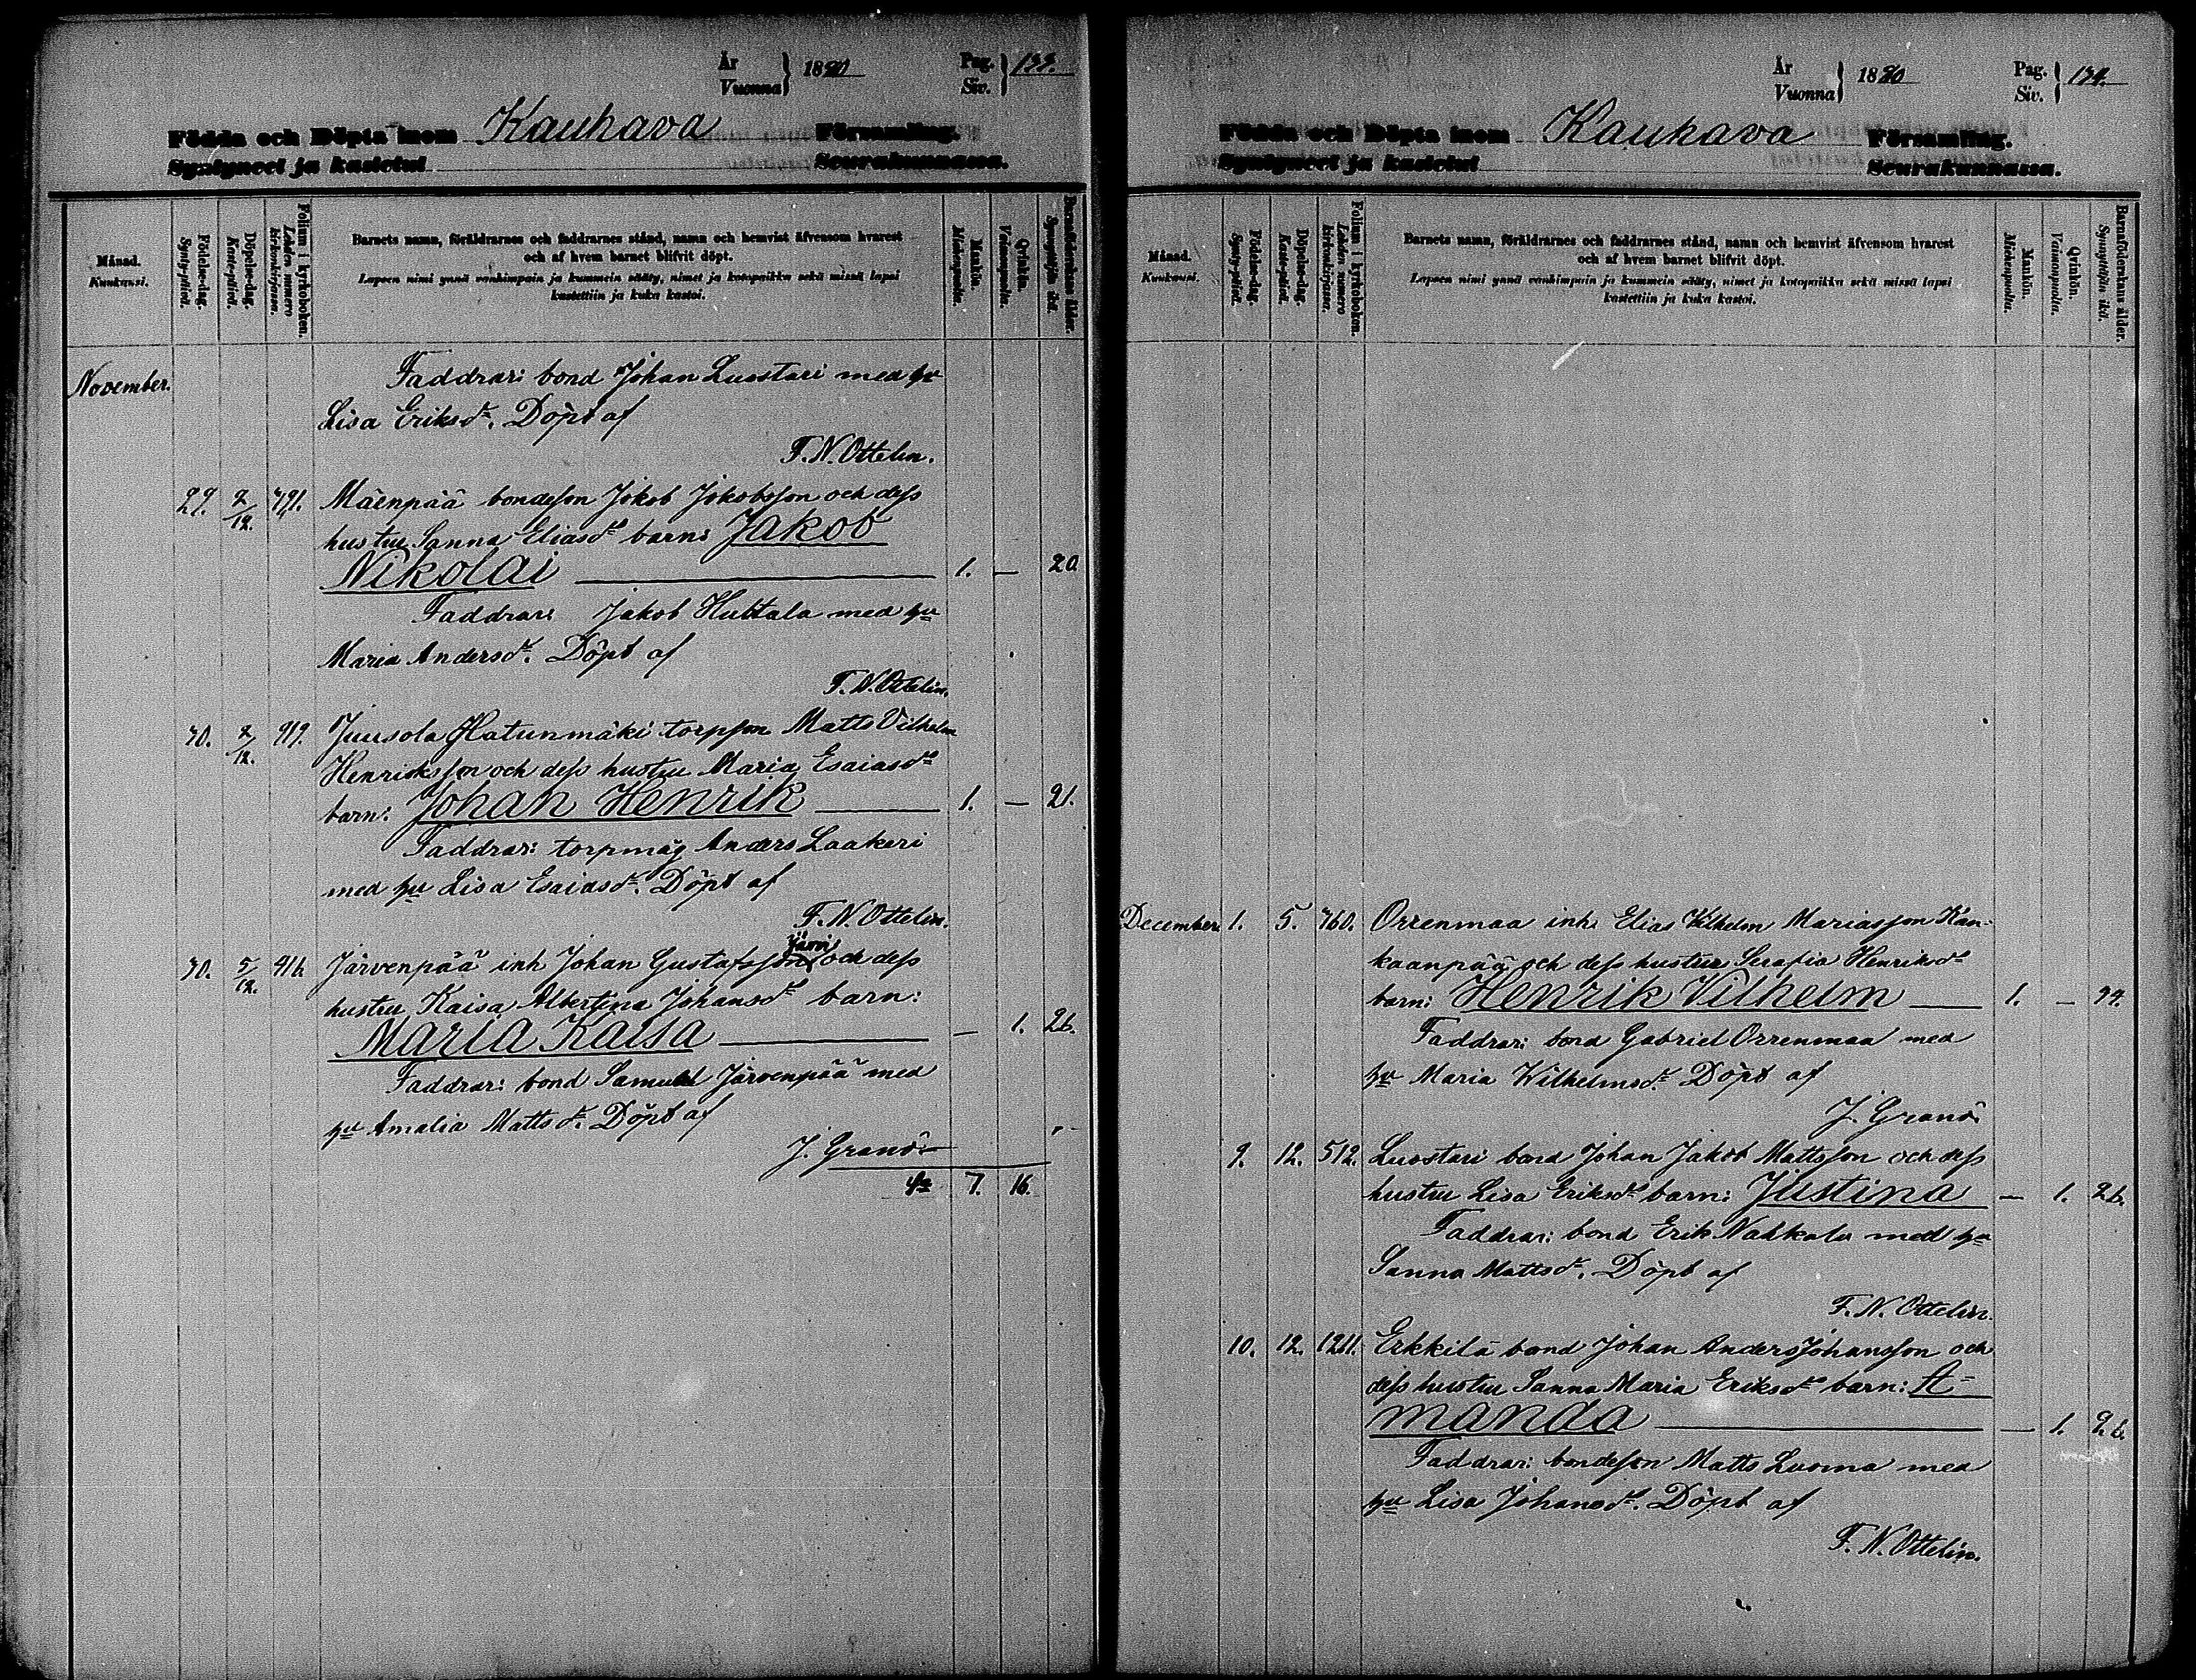 År
Vuonna } 1880 Pag.
Siv. } 133.
Födda och Döpta inom Kauhava Församling.
Syntyneet ja kastetut Seurakunnassa.
Månad.
Kuukausi.
Födelse-dag.
Synty-päivä.
Döpelse-dag.
Kaste-päivä.
Folium i kyrkoboken.
Lehden numero
kirkonkirjassa.
Barnets namn, föräldrarnes och faddrarnes stånd, namn och hemvist äfvensom hvarest
och af hvem barnet blifvit döpt.
Lapsen nimi ynnä vanhimpain ja kummein sääty, nimet ja kotopaikka sekä missä lapsi
kastettiin ja kuka kastoi.
Mankön.
Miehenpuolta.
Qvinkön.
Vaimonpuolta.
Barnaföderskans ålder.
Synnyttäjän ikä.
November. Faddrar: bond Johan Luostari med hu
Lisa Eriksdr. Döpt af
F. N. Ottelin.
29. 2/12. 791. Mäenpää bondeson Jakob Jakobsson och dess
hustru Sanna Eliasdr barn: Jakob
Nikolai 1. — 20
Faddrar: Jakob Huttala med hu
Maria Andersdr. Döpt af
F. N. Ottelin.
30. 2/12. 919. Juusola Hatunmäki torpson Matts Vilhelm
Henriksson och dess hustru Maria Esaiasdr
barn: Johan Henrik 1. — 21.
Faddrar: torpmåg Anders Laakeri
med hu Lisa Esaiasdr. Döpt af
F. N. Ottelin.
Järvi
30. 5/12. 416. Järvenpää inh Johan Gustafsson och dess
hustru Kaisa Albertina Johansdr barn:
Maria Kaisa — 1. 26.
Faddrar: bond Samuel Järvenpää med
hu Amalia Mattsdr. Döpt af
J. Granö
Sa 7. 16.
År
Vuonna } 1880 Pag.
Siv. } 134.
Födda och Döpta inom Kauhava Församling.
Syntyneet ja kastetut Seurakunnassa.
Månad.
Kuukausi.
Födelse-dag.
Synty-päivä.
Döpelse-dag.
Kaste-päivä.
Folium i kyrkoboken.
Lehden numero
kirkonkirjassa.
Barnets namn, föräldrarnes och faddrarnes stånd, namn och hemvist äfvensom hvarest
och af hvem barnet blifvit döpt.
Lapsen nimi ynnä vanhimpain ja kummein sääty, nimet ja kotopaikka sekä missä lapsi
kastettiin ja kuka kastoi.
Mankön.
Miehenpuolta.
Qvinkön.
Vaimonpuolta.
Barnaföderskans ålder.
Synnyttäjän ikä.
December 1. 5. 760. Orrenmaa inh. Elias Vilhelm Mariasson Kan-
kaanpää och dess hustru Serafia Henriksdr
barn: Henrik Vilhelm 1. — 34.
Faddrar: bond Gabriel Orrenmaa med
hu Maria Wilhelmsdr. Döpt af
J. Granö
9. 12. 512. Luostari bond Johan Jakob Mattsson och dess
hustru Lisa Eriksdr barn: Justina — 1. 26.
Faddrar: bond Erik Nahkala med hu
Sanna Mattsdr. Döpt af
F. N. Ottelin.
10. 12. 1261. Erkkilä bond Johan Anders Johansson och
dess hustru Sanna Maria Eriksdr barn: A-
manda — 1. 26.
Faddrar: bondeson Matts Luoma med
hu Lisa Johansdr. Döpt af
F. N. Ottelin.